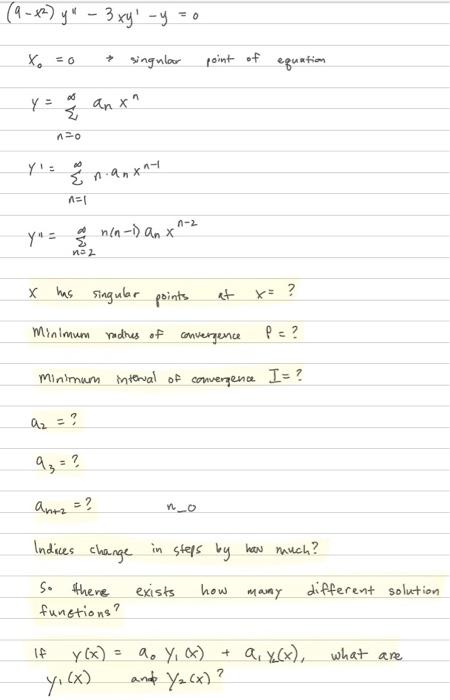 (9-x²) y" - 3xy' - y = 0
x₀ = 0 → singular point of equation
y = ∞ Σ n=0 aₙ xⁿ
y' = ∞ Σ n=1 n·aₙ xⁿ⁻¹
y" = ∞ Σ n=2 n(n-1) aₙ xⁿ⁻²
x has singular points at x = ?
Minimum radius of convergence P = ?
Minimum interval of convergence I = ?
a₂ = ?
a₃ = ?
aₙ₊₂ = ? n_0
Indices change in steps by how much?
So there exists how many different solution
functions?
If y(x) = a₀ y₁(x) + a₁ y₂(x), what are
y₁(x) and y₂(x)?